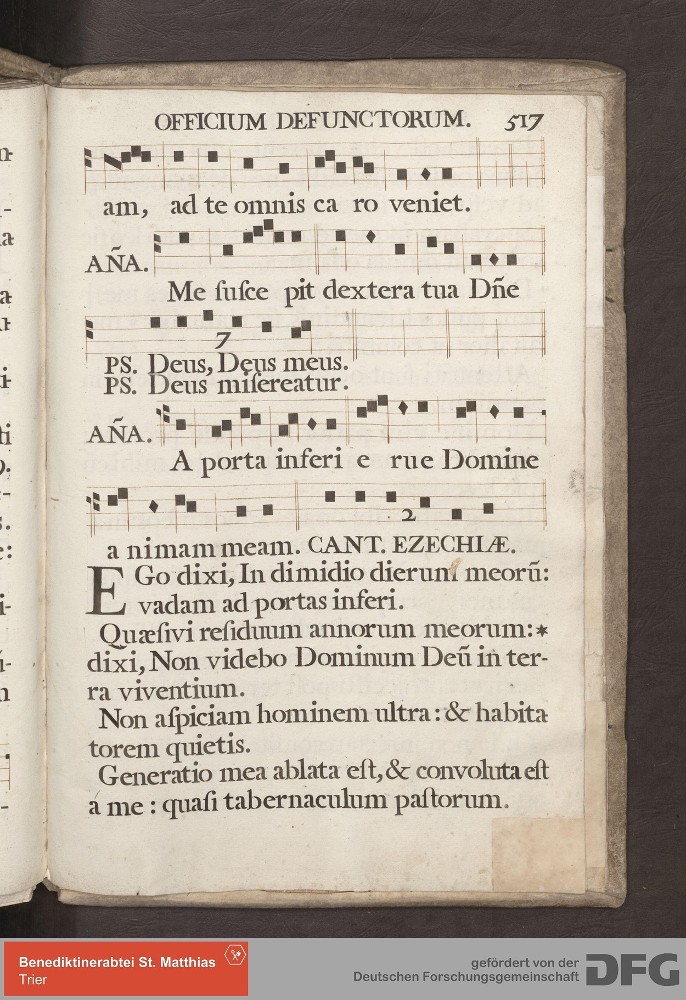 OFFICIUM DEFUNCTORUM. 517
am, ad te omnis ca ro veniet.
AÑA.
Me ſuſce pit dextera tua Dñe
7
PS. Deus, Deus meus.
PS. Deus miſereatur.
AÑA.
A porta inferi e rue Domine
2
a nimam meam. CANT. EZECHIÆ.
EGo dixi, In dimidio dierum meorũ:
vadam ad portas inferi.
Quæſivi reſiduum annorum meorum:*
dixi, Non videbo Dominum Deũ in ter-
ra viventium.
Non aſpiciam hominem ultra: & habita
torem quietis.
Generatio mea ablata eſt, & convoluta eſt
á me: quaſi tabernaculum paſtorum.
Benediktinerabtei St. Matthias
Trier
gefördert von der
Deutschen Forschungsgemeinschaft
DFG